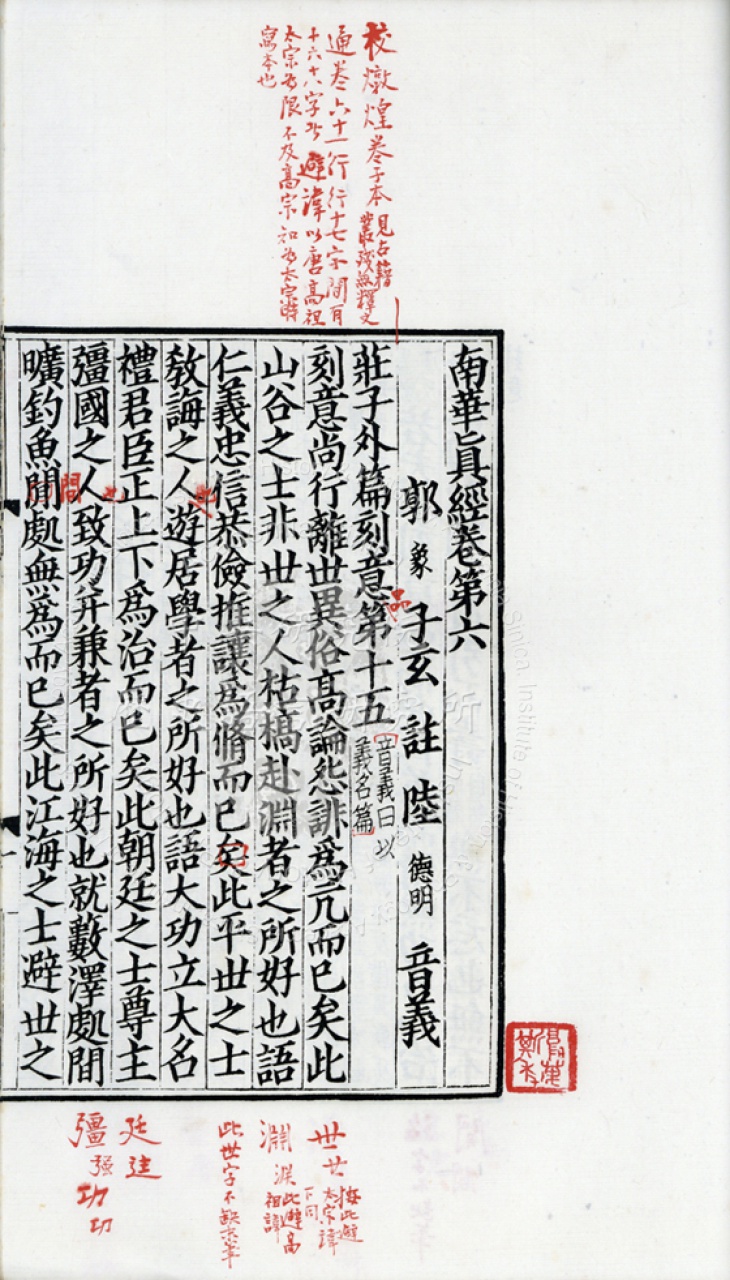 校燉煌卷子本見古籍
叢殘無釋文
通卷六十一行行十七字間有
十六十八字者避諱以唐高祖
太宗為限不及高宗知為太宗時
寫本也
南華真經卷第六
郭象子玄註陸德明音義
莊子外篇刻意第十五音義曰以
義名篇
品
刻意尚行離世異俗高論怨誹為亢而已矣此
山谷之士非世之人枯槁赴淵者之所好也語
仁義忠信恭儉推讓為脩而已矣此平世之士
教誨之人遊居學者之所好也語大功立大名
禮君臣正上下為治而已矣此朝廷之士尊主
彊國之人致功并兼者之所好也就藪澤處閒
曠釣魚閒處無為而已矣此江海之士避世之
也
也
間
世
每此避
太宗諱
下同
淵
此避高
祖諱
此世字不缺末筆
廷
彊強
功